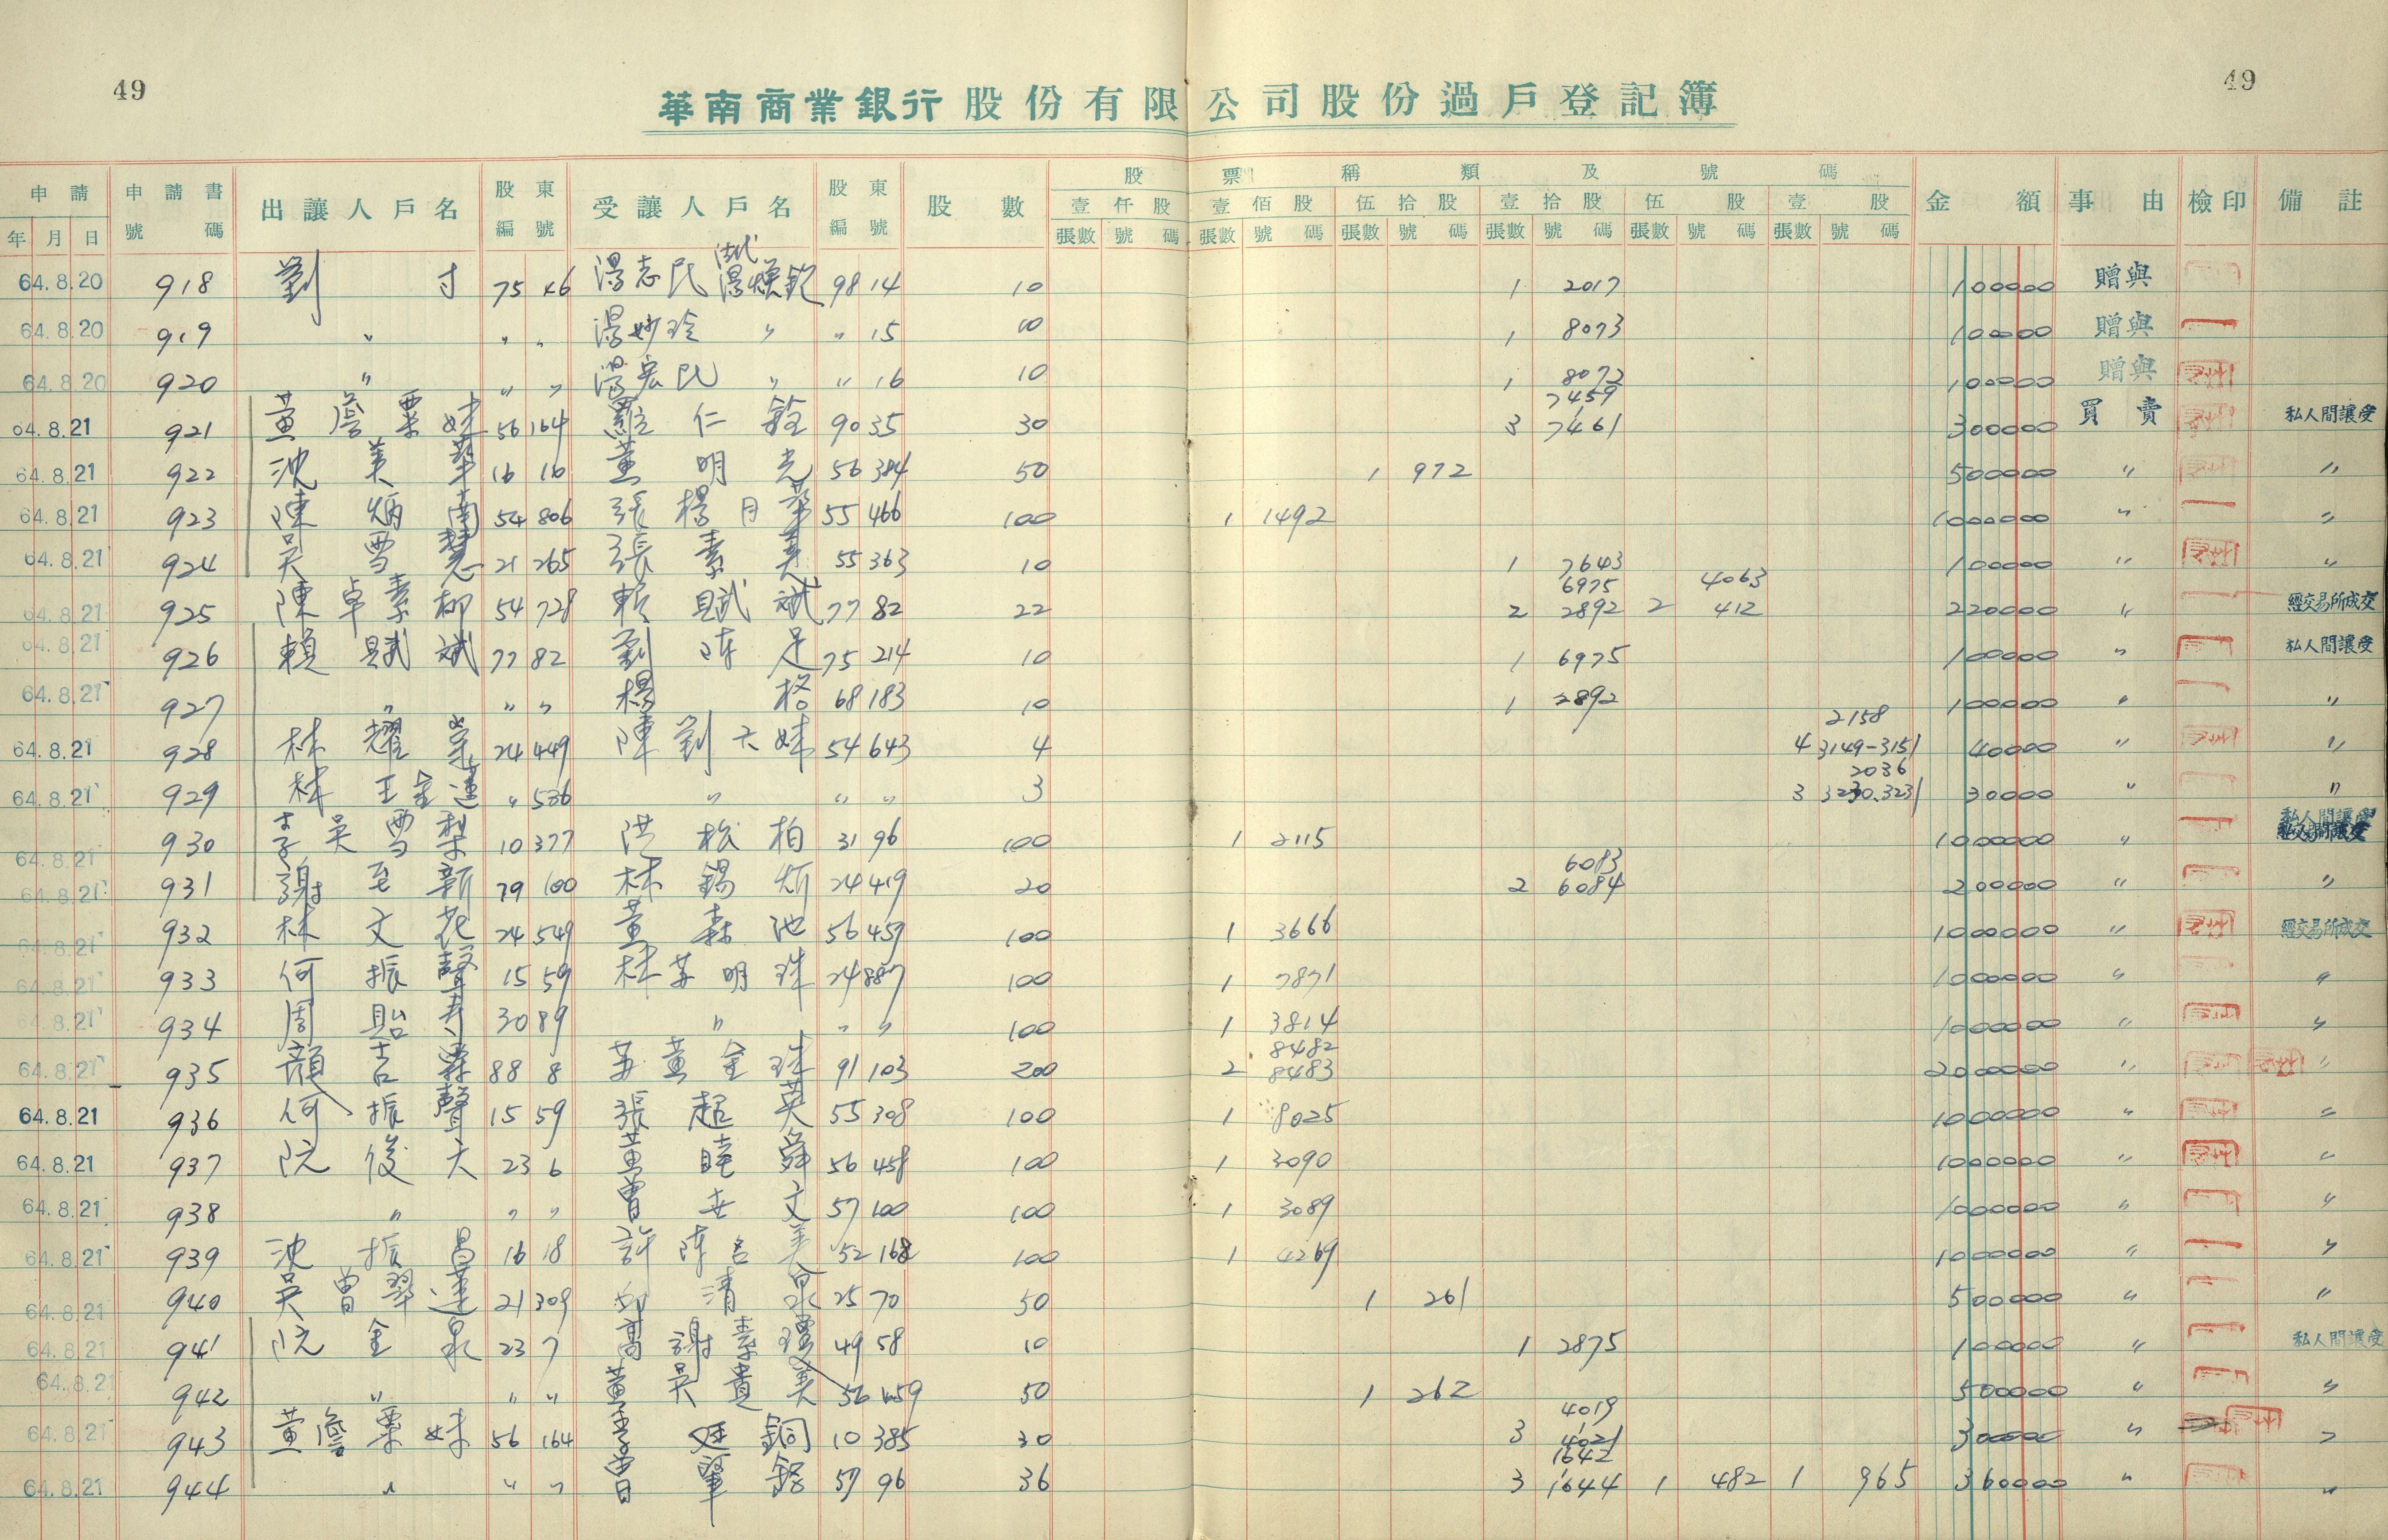 49
49
華南商業銀行股份有限公司股份過戶登記簿
申請 申請書 出讓人戶名 股東 受讓人戶名 股東 股數 股票種類及號碼 金額 事由 檢印 備註
年 月 日 號碼 編號 編號 壹仟股 壹佰股 伍拾股 壹拾股 伍股 壹股
張數 號碼 張數 號碼 張數 號碼 張數 號碼 張數 號碼 張數 號碼
64.8.20 918 劉 寸 75 46 湯志民 法代 湯煥欽 98 14 10 1 2017 100000 贈與
64.8.20 919 〃 〃 〃 湯妙玲 〃 〃 15 10 1 8073 100000 贈與
64.8.20 920 〃 〃 〃 湯宏民 〃 〃 16 10 1 8072 100000 贈與
64.8.21 921 黃詹粟妹 56 164 羅仁銓 90 35 30 3 7459 7461 300000 買賣 私人間讓受
64.8.21 922 沈美華 16 16 黃明光 56 384 50 1 972 500000 〃 〃
64.8.21 923 陳炳南 54 806 張楊月華 55 466 100 1 1492 1000000 〃 〃
64.8.21 924 吳雪慧 21 265 張素美 55 363 10 1 7643 100000 〃 〃
64.8.21 925 陳卓素柳 54 728 賴賦斌 77 82 22 2 6975 2892 2 4063 412 220000 〃 經交易所成交
64.8.21 926 賴賦斌 77 82 劉陳足 75 214 10 1 6975 100000 〃 私人間讓受
64.8.21 927 〃 〃 〃 楊格 68 183 10 1 2892 100000 〃 〃
64.8.21 928 林耀崇 24 449 陳劉六妹 54 643 4 4 2158 3149-3151 40000 〃 〃
64.8.21 929 林王金蓮 〃 536 〃 〃 〃 3 3 2036 3230.3231 30000 〃 〃
64.8.21 930 李吳雪梨 10 377 洪松柏 31 96 100 1 2115 1000000 〃 私人間讓受
64.8.21 931 謝至新 79 100 林錫炘 24 419 20 2 6083 6084 200000 〃 〃
64.8.21 932 林文花 24 549 黃森池 56 457 100 1 3666 1000000 〃 經交易所成交
64.8.21 933 何振聲 15 59 林苏明珠 24 887 100 1 7871 1000000 〃 〃
64.8.21 934 周貽寿 30 89 〃 〃 〃 100 1 3814 1000000 〃 〃
64.8.21 935 顏吉霖 88 8 苏黃金珠 91 103 200 2 8482 8483 2000000 〃 〃
64.8.21 936 何振聲 15 59 張超英 55 308 100 1 8025 1000000 〃 〃
64.8.21 937 阮俊夫 23 6 黃睦舜 56 458 100 1 3090 1000000 〃 〃
64.8.21 938 〃 〃 〃 曾世文 57 100 100 1 3089 1000000 〃 〃
64.8.21 939 沈振昌 16 18 許陳名美 52 168 100 1 4269 1000000 〃 〃
64.8.21 940 吳曾翠蓮 21 309 邱清泉 25 70 50 1 261 500000 〃 〃
64.8.21 941 阮金泉 23 7 高謝素瓊 49 58 10 1 2875 100000 〃 私人間讓受
64.8.21 942 〃 〃 〃 黃吳貴美 56 459 50 1 262 500000 〃 〃
64.8.21 943 黃詹粟妹 56 164 李廷銅 10 385 30 3 4019 4021 300000 〃 〃
64.8.21 944 〃 〃 〃 曾肇銘 57 96 36 3 1642 1644 1 482 1 965 360000 〃 〃